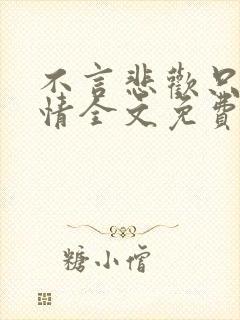 不言悲歡只
情全文免費
糖小僧